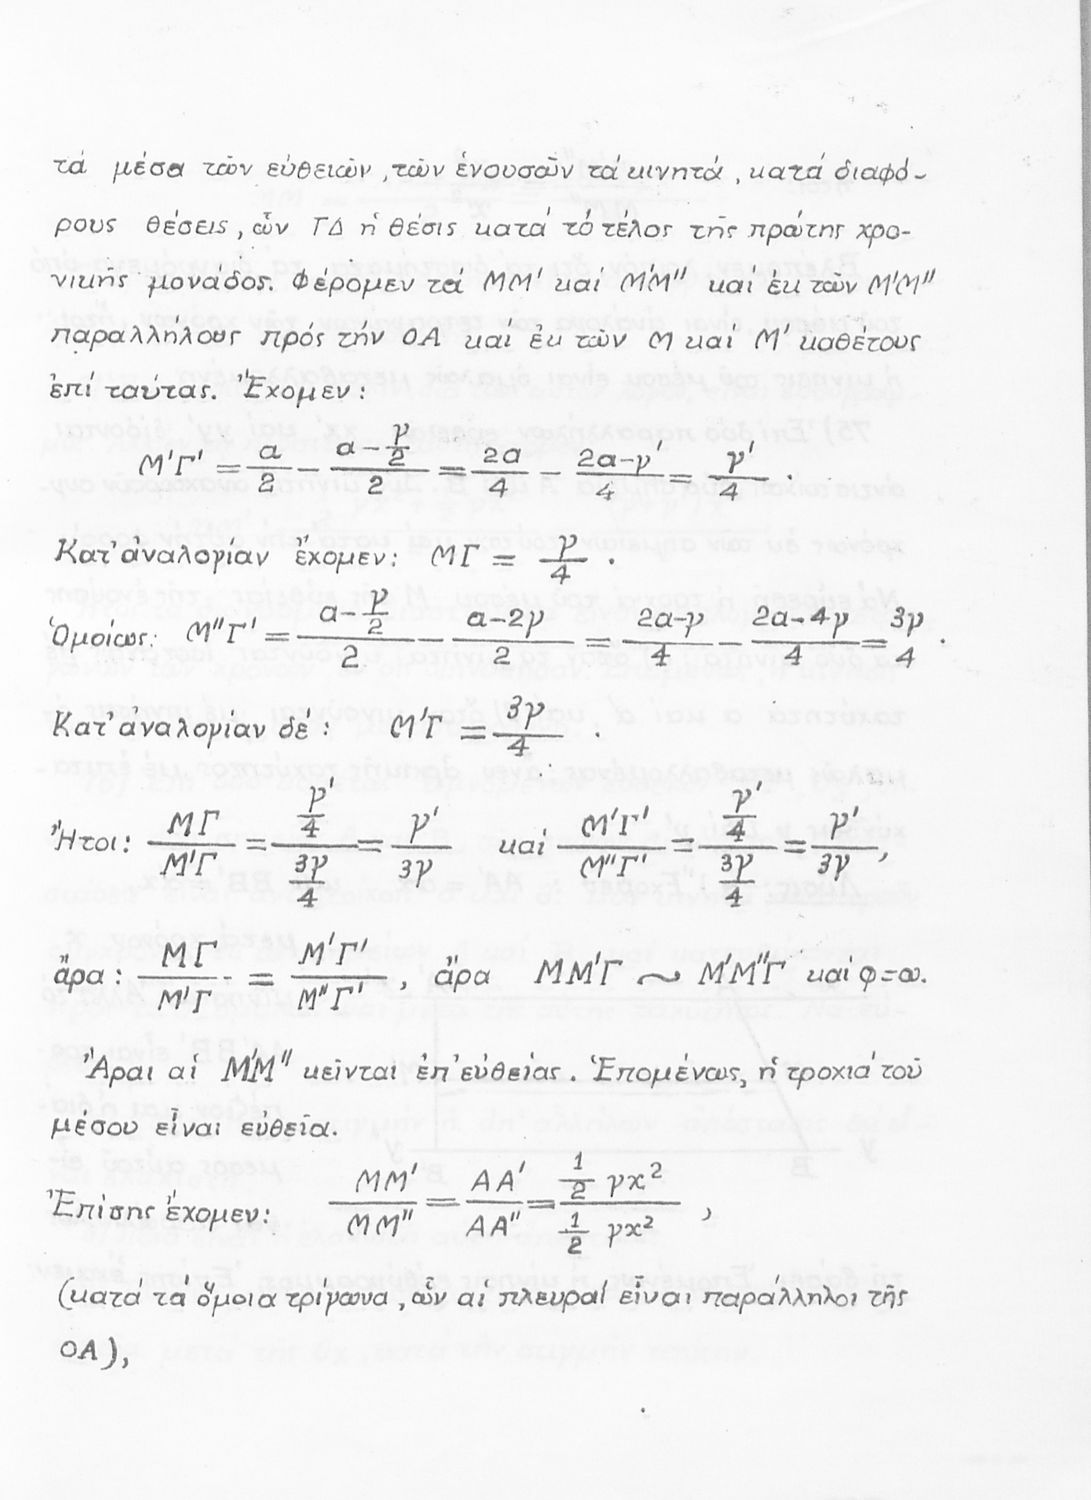 τά μέσα τῶν εὐθειῶν, τῶν ἑνουσῶν τά κινητά, κατά διαφό-
ρους θέσεις, ὧν ΓΔ ἡ θέσις κατά τό τέλος τῆς πρώτης χρο-
νικῆς μονάδος. Φέρομεν τά ΜΜ' καί Μ'Μ'' καί ἐκ τῶν Μ'Μ''
παραλλήλους πρός τήν ΟΑ καί ἐκ τῶν Μ καί Μ' καθέτους
ἐπί ταύτας. Ἔχομεν:
Μ'Γ' = α/2 - (α - γ/2)/2 = 2α/4 - (2α-γ')/4 = γ'/4 .
Κατ' ἀναλογίαν ἔχομεν: ΜΓ = γ/4 .
Ὁμοίως: Μ''Γ' = (α - γ/2)/2 - (α-2γ)/2 = (2α-γ)/4 - (2α-4γ)/4 = 3γ/4 .
Κατ' ἀναλογίαν δέ: Μ'Γ = 3γ/4 .
Ἤτοι: ΜΓ/Μ'Γ = (γ'/4)/(3γ/4) = γ'/3γ καί Μ'Γ'/Μ''Γ' = (γ'/4)/(3γ/4) = γ'/3γ,
ἄρα: ΜΓ/Μ'Γ = Μ'Γ'/Μ''Γ' , ἄρα ΜΜ'Γ ~ Μ'Μ''Γ καί φ=ω.
Ἄραι αἱ ΜΜ'Μ'' κεῖνται ἐπ' εὐθείας. Ἑπομένως, ἡ τροχιά τοῦ
μέσου εἶναι εὐθεῖα.
Ἐπίσης ἔχομεν: ΜΜ'/ΜΜ'' = ΑΑ'/ΑΑ'' = (1/2 γχ²)/(1/2 γχ²) ,
(κατά τά ὅμοια τρίγωνα, ὧν αἱ πλευραί εἶναι παράλληλοι τῆς
ΟΑ),